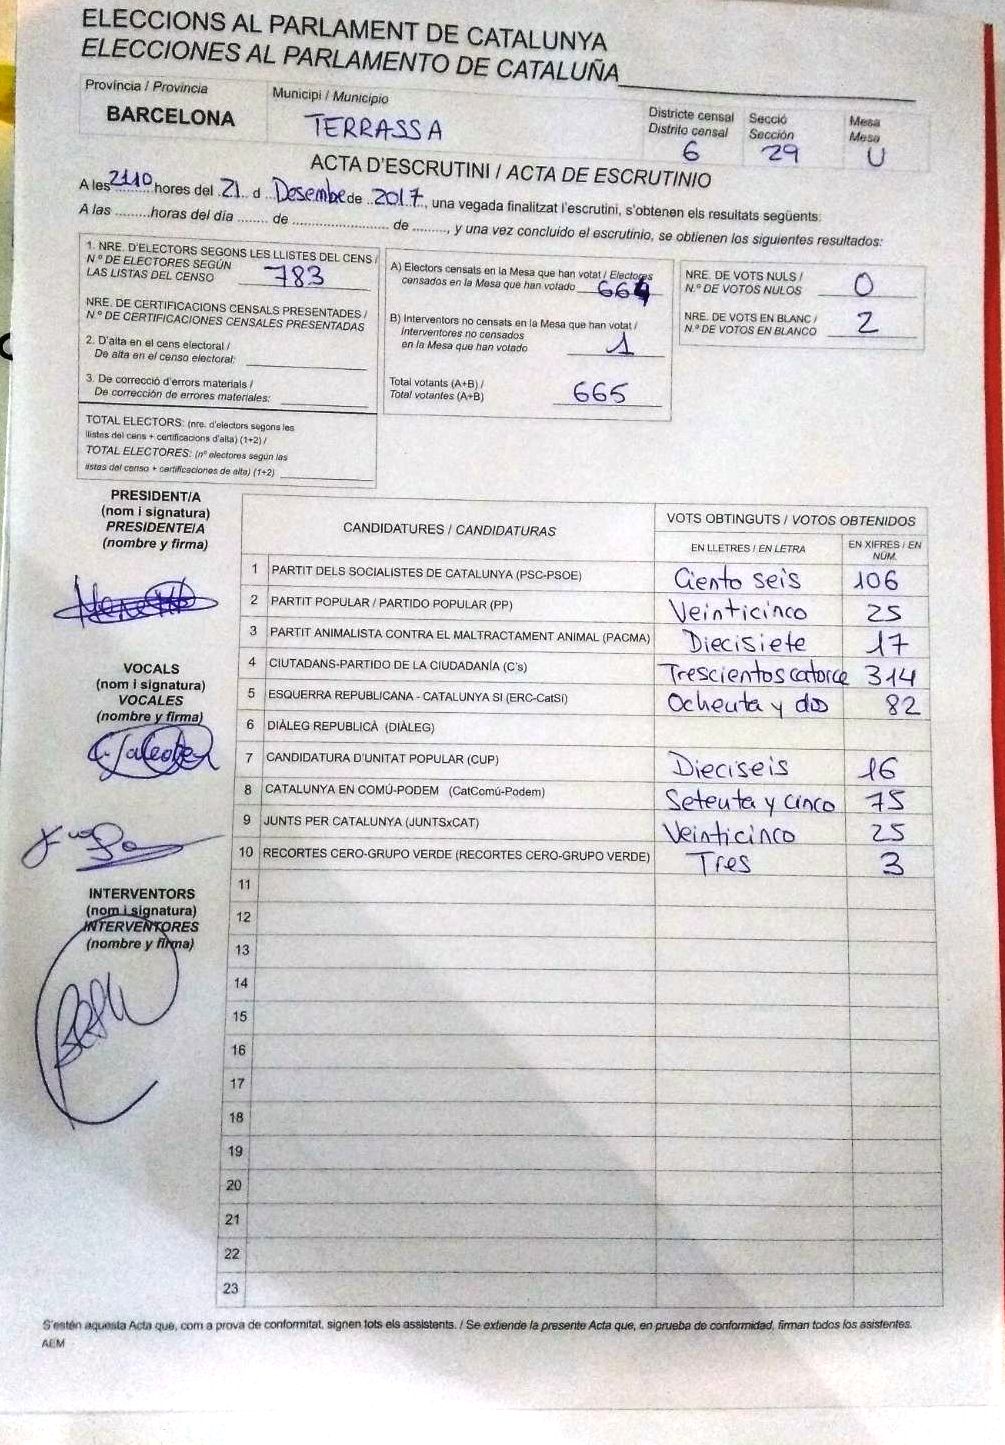 ELECCIONS AL PARLAMENT DE CATALUNYA
ELECCIONES AL PARLAMENTO DE CATALUÑA
Província / Provincia
BARCELONA
Municipi / Municipio
TERRASSA
Districte censal
Distrito censal
6
Secció
Sección
29
Mesa
Mesa
U
ACTA D'ESCRUTINI / ACTA DE ESCRUTINIO
A les 2110 hores del 21 d Desembe de 2017, una vegada finalitzat l'escrutini, s'obtenen els resultats següents:
A las .........horas del día ........ de ........................ de ........., y una vez concluido el escrutinio, se obtienen los siguientes resultados:
1. NRE. D'ELECTORS SEGONS LES LLISTES DEL CENS /
N.º DE ELECTORES SEGÚN
LAS LISTAS DEL CENSO 783
NRE. DE CERTIFICACIONS CENSALS PRESENTADES /
N.º DE CERTIFICACIONES CENSALES PRESENTADAS
2. D'alta en el cens electoral /
De alta en el censo electoral:
3. De correcció d'errors materials /
De corrección de errores materiales:
TOTAL ELECTORS: (nre. d'electors segons les
llistes del cens + certificacions d'alta) (1+2) /
TOTAL ELECTORES: (nº electores según las
listas del censo + certificaciones de alta) (1+2)
A) Electors censats en la Mesa que han votat / Electores
censados en la Mesa que han votado 664
B) Interventors no censats en la Mesa que han votat /
Interventores no censados
en la Mesa que han votado 1
Total votants (A+B) /
Total votantes (A+B) 665
NRE. DE VOTS NULS /
N.º DE VOTOS NULOS 0
NRE. DE VOTS EN BLANC /
N.º DE VOTOS EN BLANCO 2
PRESIDENT/A
(nom i signatura)
PRESIDENTE/A
(nombre y firma)
VOCALS
(nom i signatura)
VOCALES
(nombre y firma)
INTERVENTORS
(nom i signatura)
INTERVENTORES
(nombre y firma)
CANDIDATURES / CANDIDATURAS
VOTS OBTINGUTS / VOTOS OBTENIDOS
EN LLETRES / EN LETRA
EN XIFRES / EN
NÚM.
1 PARTIT DELS SOCIALISTES DE CATALUNYA (PSC-PSOE) Ciento seis 106
2 PARTIT POPULAR / PARTIDO POPULAR (PP) Veinticinco 25
3 PARTIT ANIMALISTA CONTRA EL MALTRACTAMENT ANIMAL (PACMA) Diecisiete 17
4 CIUTADANS-PARTIDO DE LA CIUDADANÍA (C's) Trescientos catorce 314
5 ESQUERRA REPUBLICANA - CATALUNYA SI (ERC-CatSí) Ochenta y dos 82
6 DIÀLEG REPUBLICÀ (DIÀLEG)
7 CANDIDATURA D'UNITAT POPULAR (CUP) Dieciseis 16
8 CATALUNYA EN COMÚ-PODEM (CatComú-Podem) Setenta y cinco 75
9 JUNTS PER CATALUNYA (JUNTSxCAT) Veinticinco 25
10 RECORTES CERO-GRUPO VERDE (RECORTES CERO-GRUPO VERDE) Tres 3
11
12
13
14
15
16
17
18
19
20
21
22
23
S'estén aquesta Acta que, com a prova de conformitat, signen tots els assistents. / Se extiende la presente Acta que, en prueba de conformidad, firman todos los asistentes.
AEM